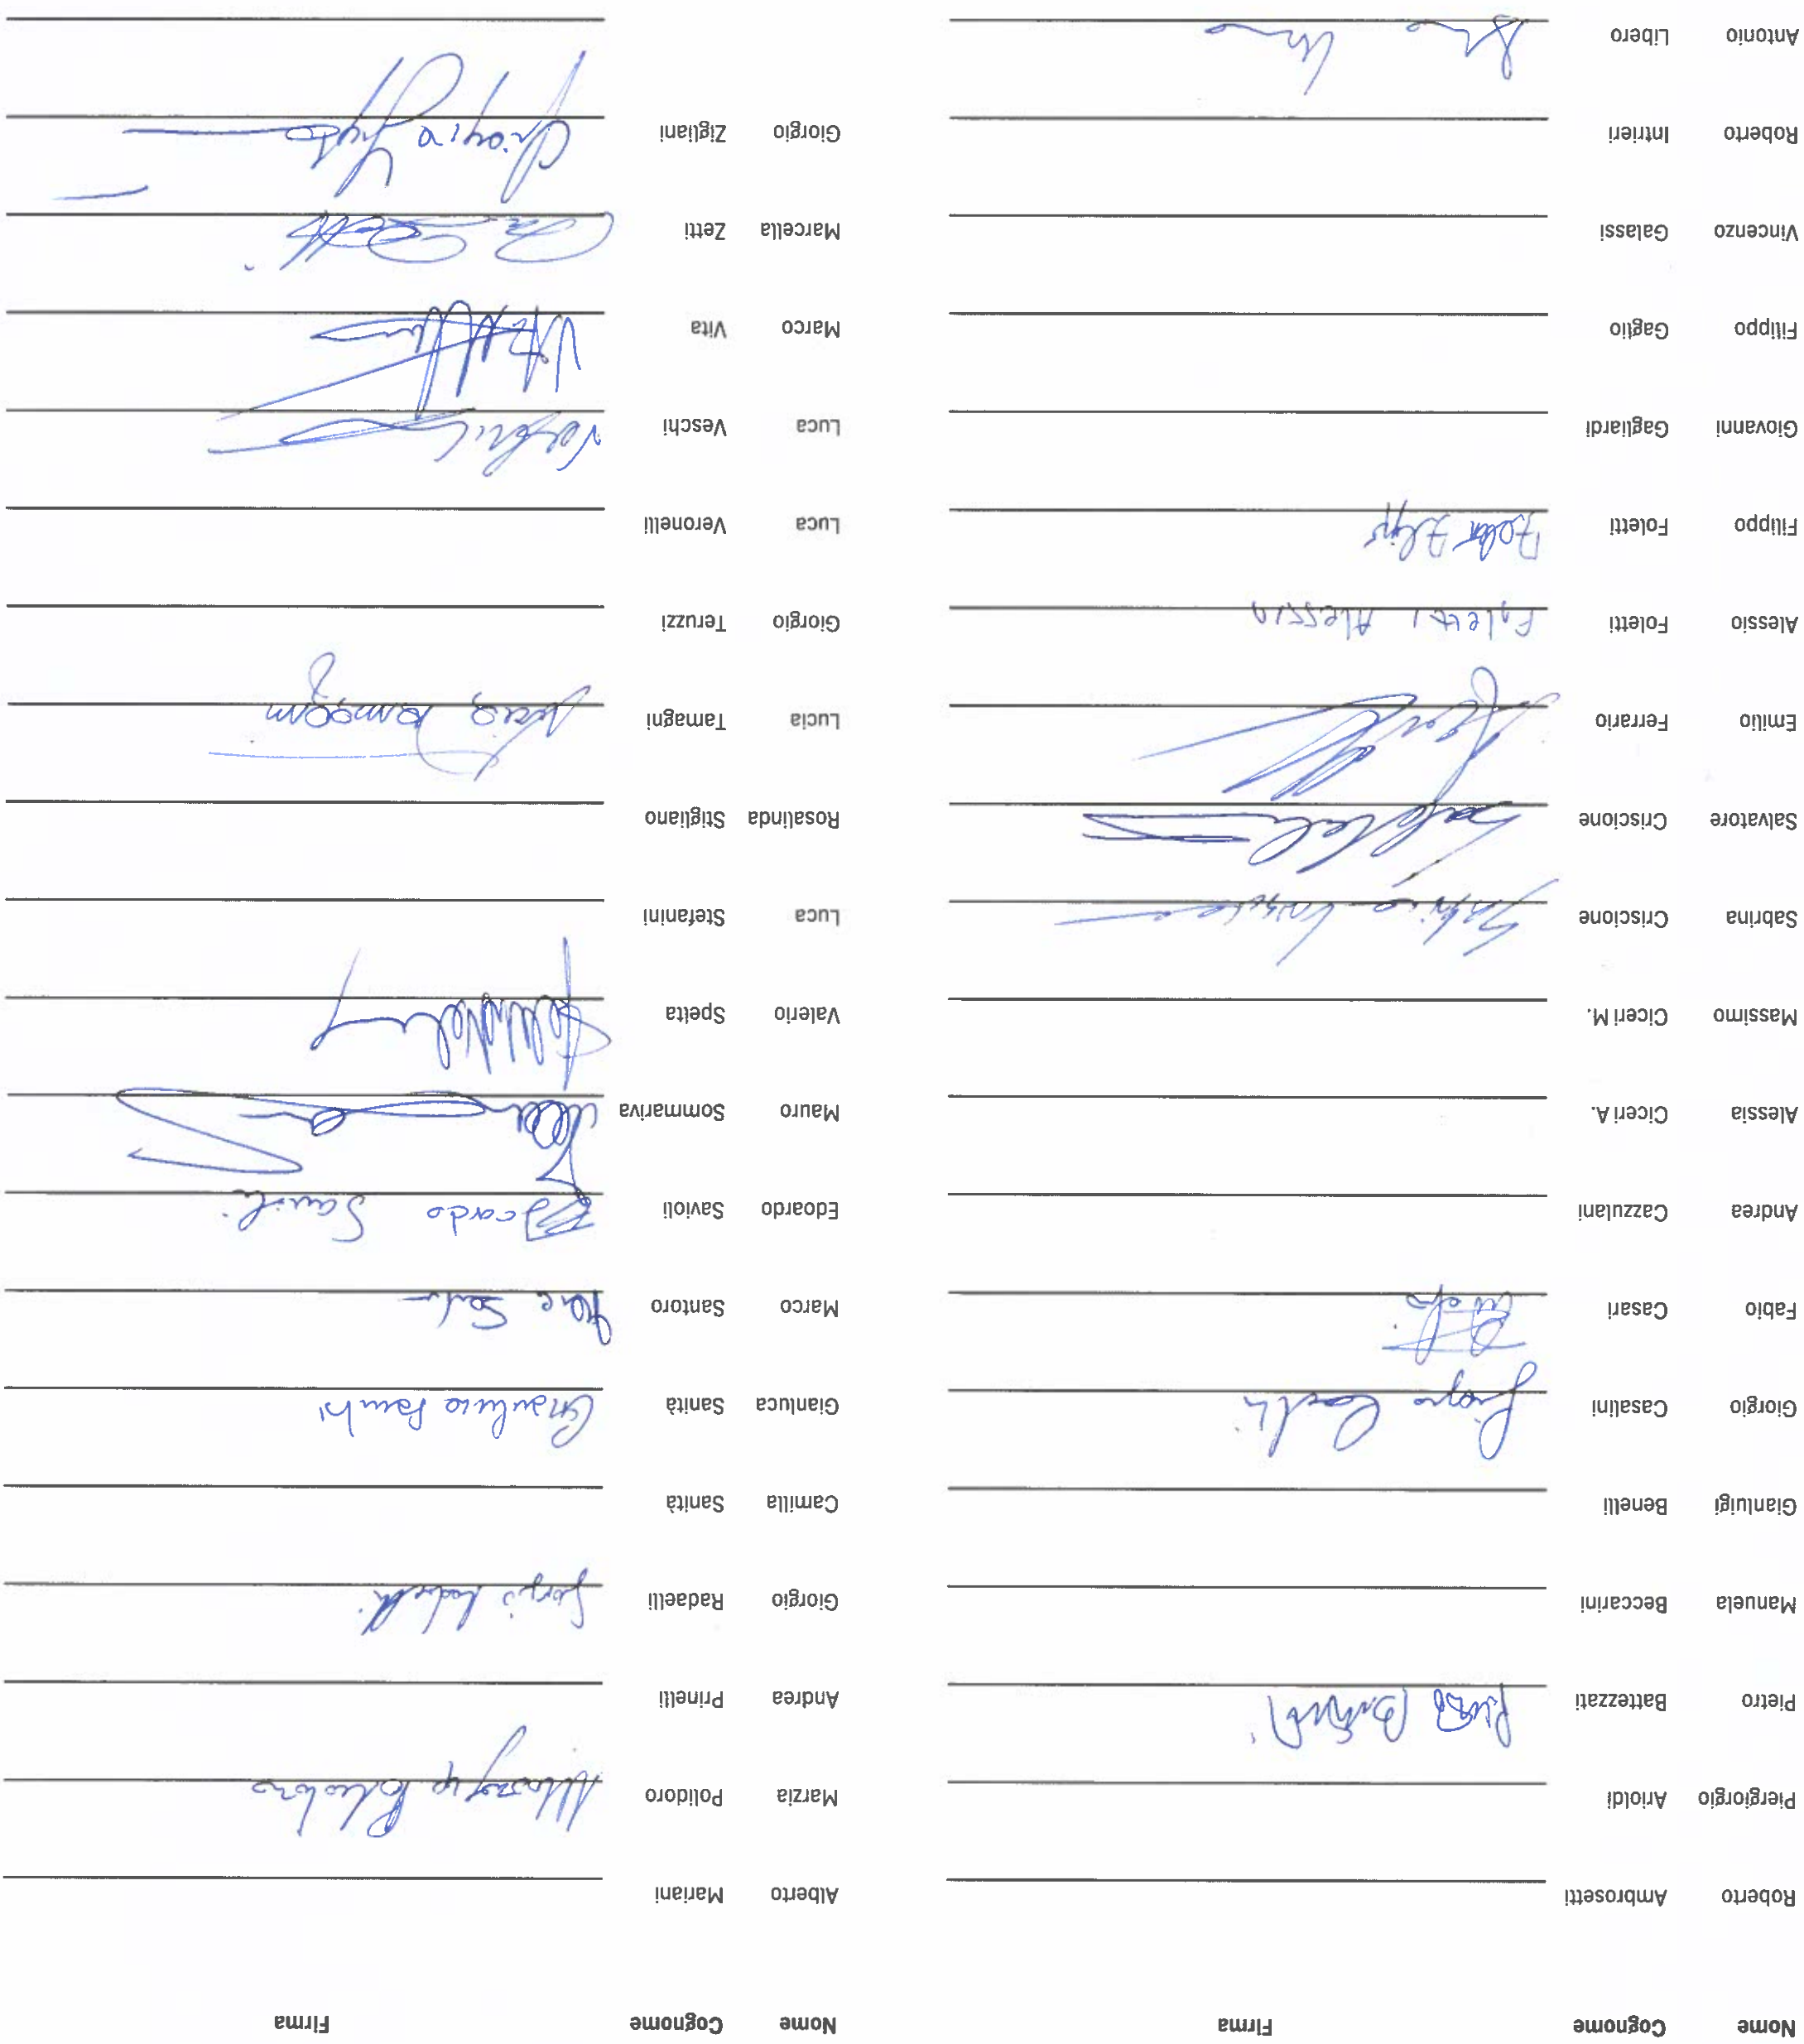 Nome Cognome Firma
Roberto Ambrosetti
Piergiorgio Arioldi
Pietro Battezzati
Manuela Beccarini
Gianluigi Benelli
Giorgio Casalini
Fabio Casari
Andrea Cazzulani
Alessia Ciceri A.
Massimo Ciceri M.
Sabrina Criscione Sabrina Criscione
Salvatore Criscione
Emilio Ferrario
Alessio Foletti Foletti Alessio
Filippo Foletti
Giovanni Gagliardi
Filippo Gaglio
Vincenzo Galassi
Roberto Intrieri
Antonio Libero
Nome Cognome Firma
Alberto Mariani
Marzia Polidoro Polidoro
Andrea Prinelli
Giorgio Radaelli Giorgio Radaelli
Camilla Sanità
Gianluca Sanità Gianluca
Marco Santoro
Edoardo Savioli Edoardo Savioli
Mauro Sommariva
Valerio Spelta
Luca Stefanini
Rosalinda Stigliano
Lucia Tamagni Lucia Tamagni
Giorgio Teruzzi
Luca Veronelli
Luca Veschi
Marco Vita
Marcella Zetti
Giorgio Zigliani